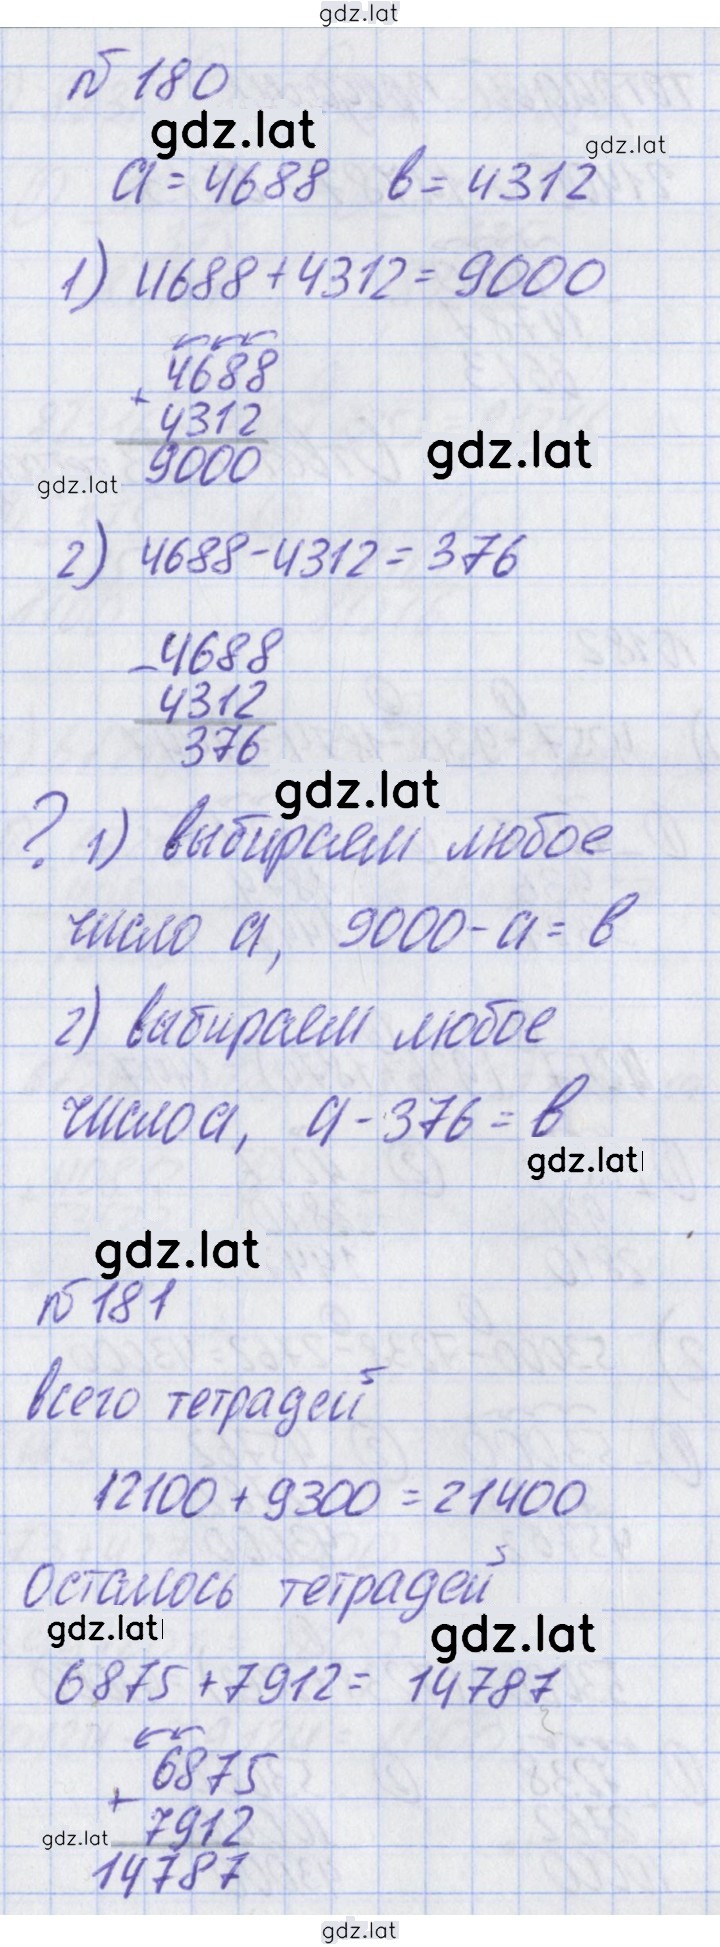 gdz.lat
№ 180
gdz.lat
gdz.lat
a = 4688   в = 4312
1) 4688 + 4312 = 9000
4688
+
4312
9000
gdz.lat
gdz.lat
2) 4688 - 4312 = 376
- 4688
4312
376
gdz.lat
? 1) выбираем любое
число a, 9000 - a = в
2) выбираем любое
число a, a - 376 = в
gdz.lat
gdz.lat
№ 181
всего тетрадей
12100 + 9300 = 21400
Осталось тетрадей
gdz.lat
gdz.lat
6875 + 7912 = 14787
6875
+
7912
gdz.lat
14787
gdz.lat